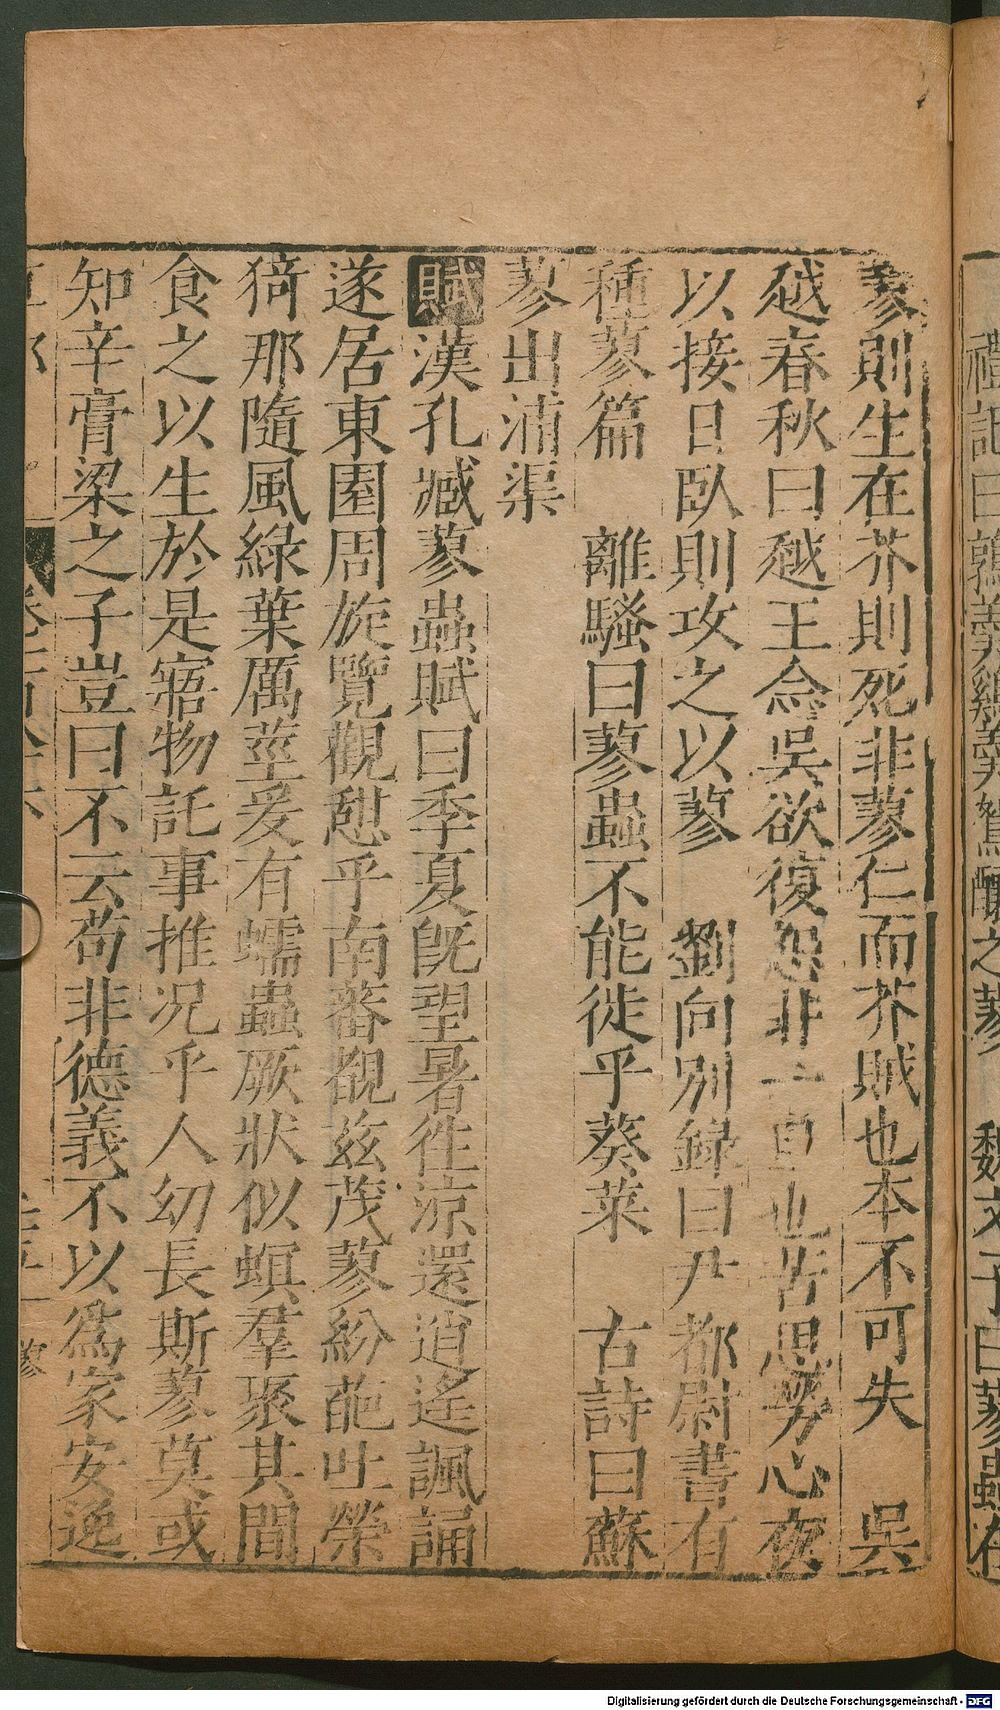 禮記曰鶉羹雞羹鴽釀之蓼 魏文子曰蓼蟲在
蓼則生在芥則死非蓼仁而芥賊也本不可失 吳
越春秋曰越王念吳欲復怨非一旦也苦思勞心夜
以接日臥則攻之以蓼 劉向別錄曰尹都尉書有
種蓼篇 離騷曰蓼蟲不能徙乎葵菜 古詩曰蘇
蓼出浦渠
賦漢孔臧蓼蟲賦曰季夏旣望暑徃涼還逍遙諷誦
遂居東園周旋覽觀憇乎南蕃覩茲茂蓼紛葩吐榮
猗那隨風綠葉厲莖爰有蠕蟲厥狀似螟羣聚其間
食之以生於是寤物託事推况乎人幼長斯蓼莫或
知辛膏梁之子豈曰不云苟非德義不以爲家安逸
蓼
Digitalisierung gefördert durch die Deutsche Forschungsgemeinschaft - DFG